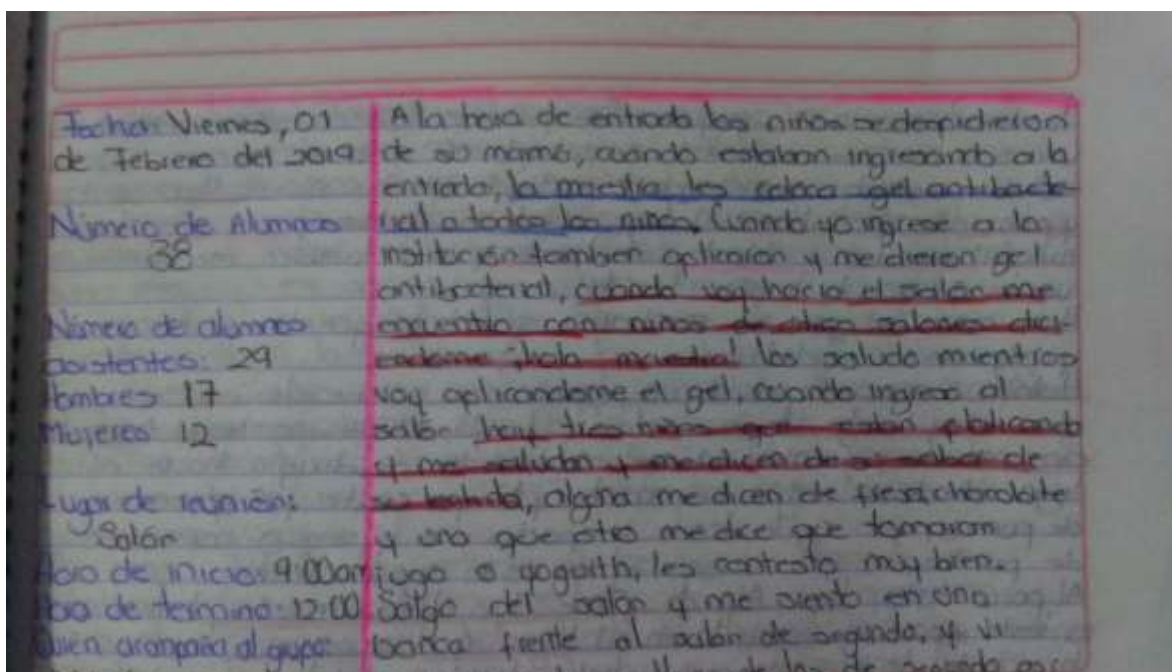 Fecha: Viernes, 01
de Febrero del 2019
Número de Alumnos
38
Número de alumnos
asistentes: 29
Hombres 17
Mujeres 12
Lugar de reunión:
Salón
Hora de inicio: 9:00am
Hora de termino: 12:00
Quien acompaña al grupo:
A la hora de entrada los niños se despidieron
de su mamá, cuando estaban ingresando a la
entrada, la maestra les coloca gel antibacte-
rial a todos los niños. Cuando yo ingrese a la
institución tambien aplicaron y me dieron gel
antibacterial, cuando voy hacia el salón me
encuentro con niños de otros salones dici-
endome ¡hola maestra! los saludo mientras
voy aplicandome el gel, cuando ingreso al
salón hay tres niños que estan platicando
y me saludan y me dicen de su sabor de
su lechita, alguna me dicen de fresa, chocolate
y uno que otro me dice que tomaron
jugo o yogurth, les contesto muy bien.
Salgo del salón y me siento en una
banca frente al salón de segundo, y vi